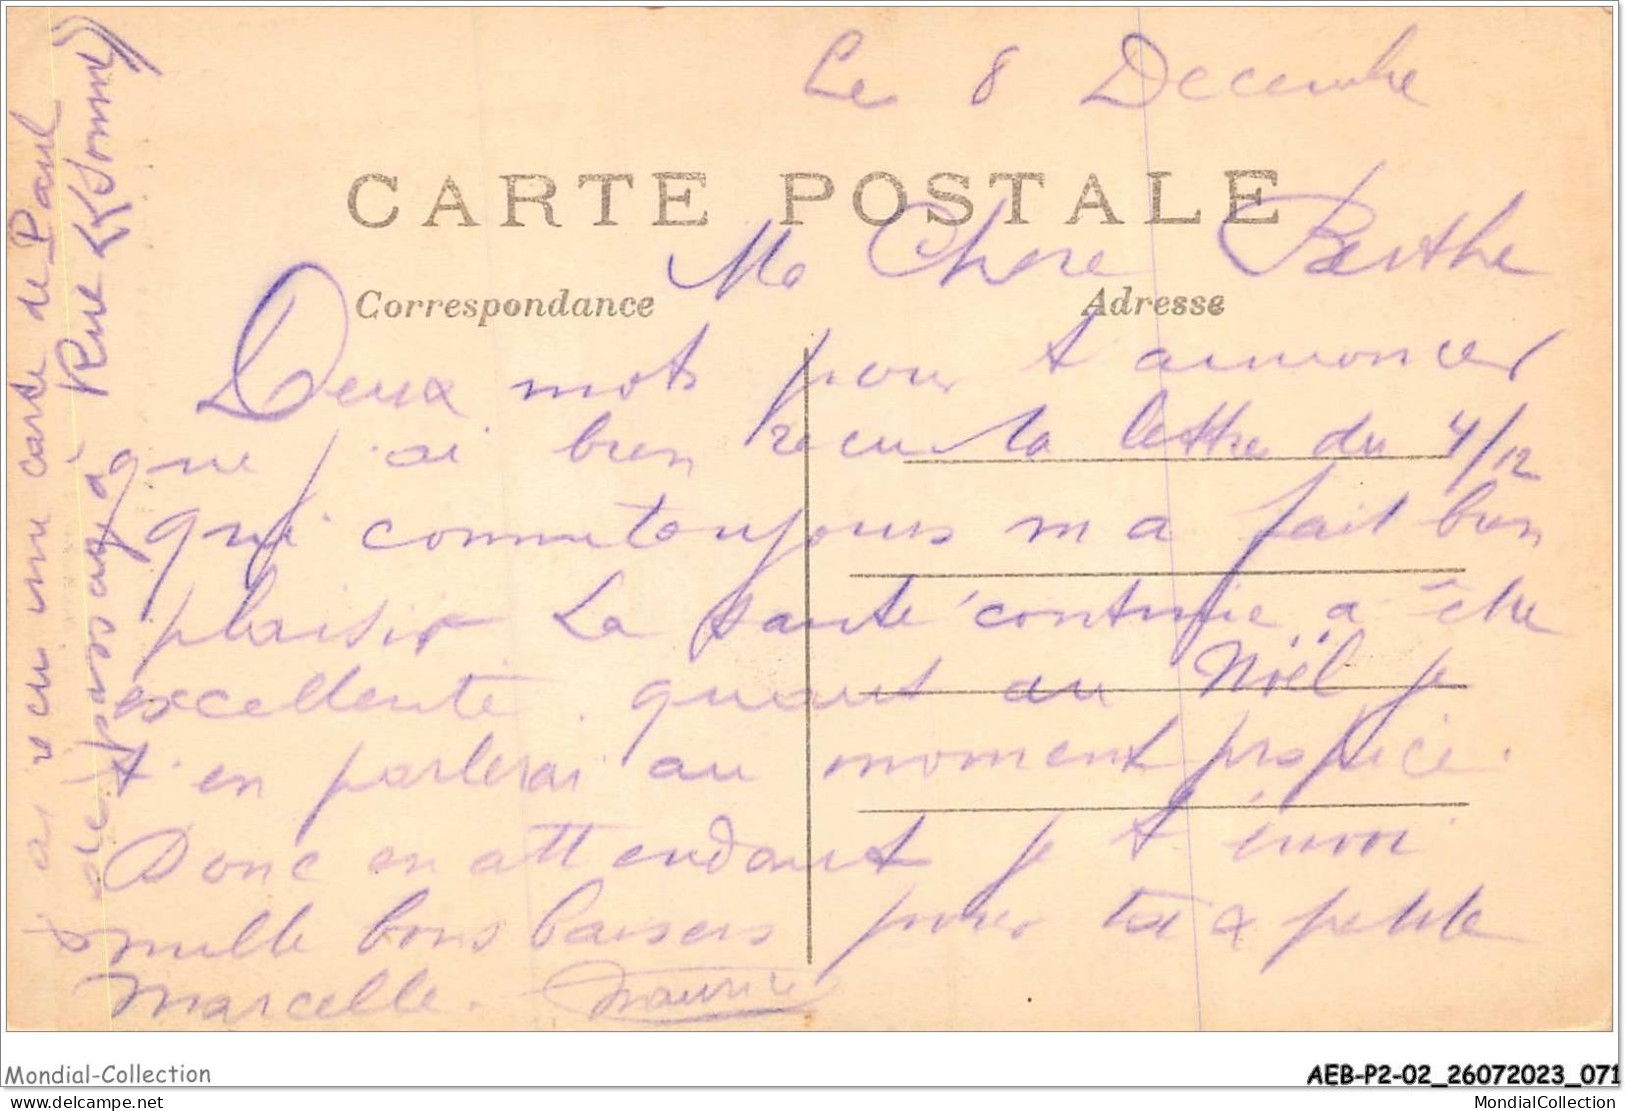 Le 8 Decembre
CARTE POSTALE
Ma Chere Berthe
Correspondance
Adresse
Deux mots pour t'annoncer
que j'ai bien recu la lettre du 4/12
qui comme toujours m'a fait bien
plaisir La santé continue a être
excellente. quant au Noël je
t'en parlerai au moment propice.
Donc en attendant je t'envoi
mille bons baisers pour toi & petite
Marcelle. Maurice
J'ai recu une carte de Paul
de passage à Rue (Somme)
Mondial-Collection
AEB-P2-02_26072023_071
www.delcampe.net
MondialCollection